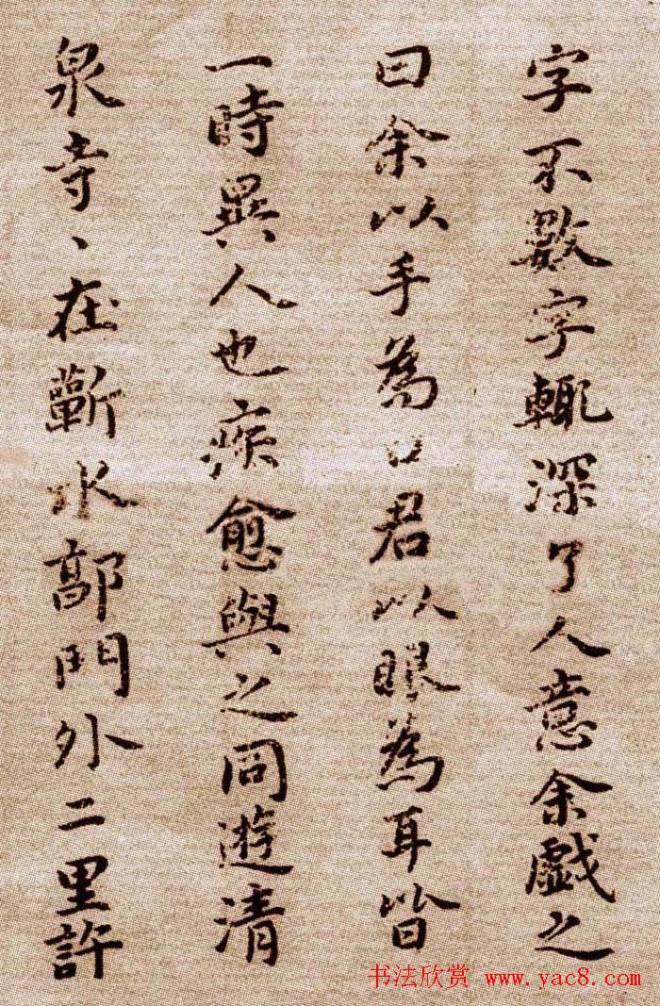 字不數字輒深了人意余戲之
曰余以手為口君以眼為耳皆
一時異人也疾愈與之同遊清
泉寺、在蘄水郭門外二里許
书法欣赏 www.yac8.com